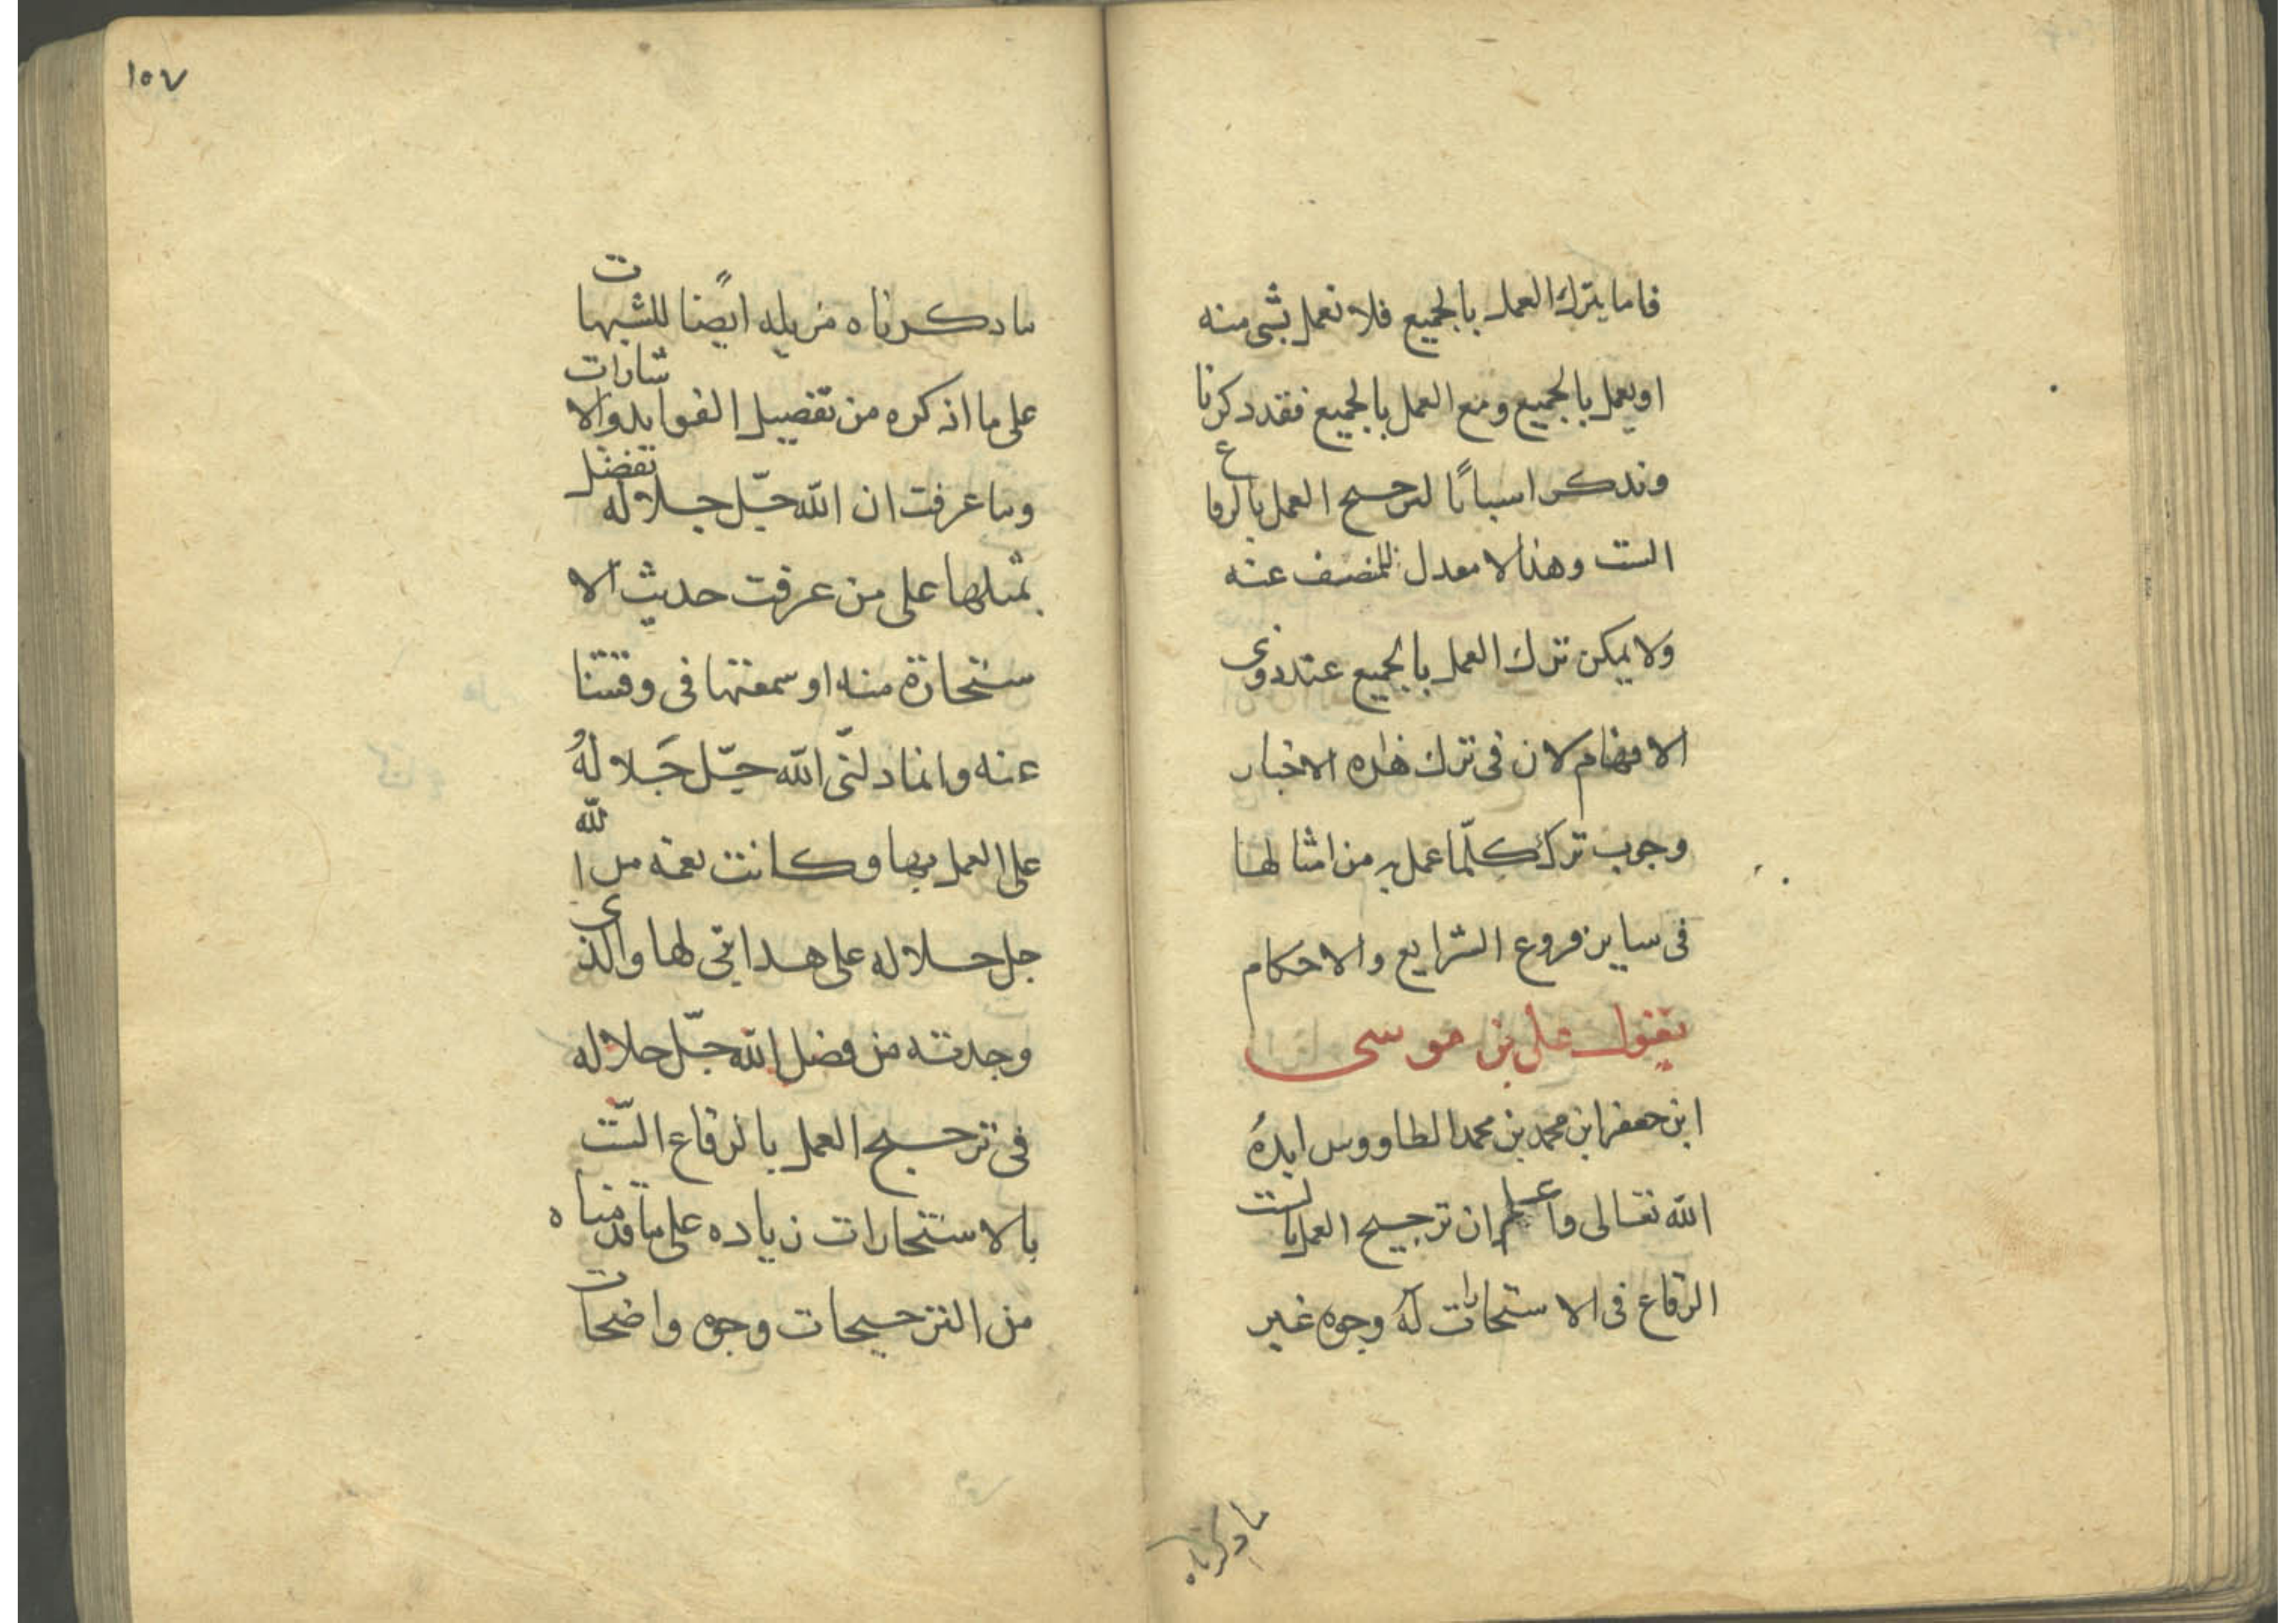 فاما يترك العمل بالجميع فلا نعمل بشى منه
او يعمل بالجميع ومع العمل بالجميع فقد دكرنا
وندكر اسبابًا لترجيح العمل بالرقاع
الست وهذا لا معدل للمنصف عنه
ولا يمكن ترك العمل بالجميع عند ذوى
الافهام لان فى ترك هذه الاخبار
وجوب ترك كلّما عمل به من امثالها
فى ساير فروع الشرايع والاحكام
يقول على بن موسى
ابن جعفر ابن محمد بن محمد الطاووس ايدهُ
الله تعالى واعلم ان ترجيح العمل بالست
الرقاع فى الاستخارات له وجوه غير
ما دكرناه
١٥٧
ما دكرناه مزيله ايضًا للشبهات
على ما اذكره من تفصيل الفوايد والاشارات
وما عرفت ان الله جلّ جلاله تفضل
بمثلها على من عرفت حديث الا
ستخارة منه او سمعتها فى وقتنا
عنه وانما دلنى الله جلّ جَلالهُ
على العمل بها وكانت نعمه من الله
جل جلاله على هدايتى لها والذى
وجدته من فضل الله جلّ جلاله
فى ترجيح العمل بالرقاع الستّ
بالاستخارات زياده على ما قدمناه
من الترجيحات وجوه واضحات